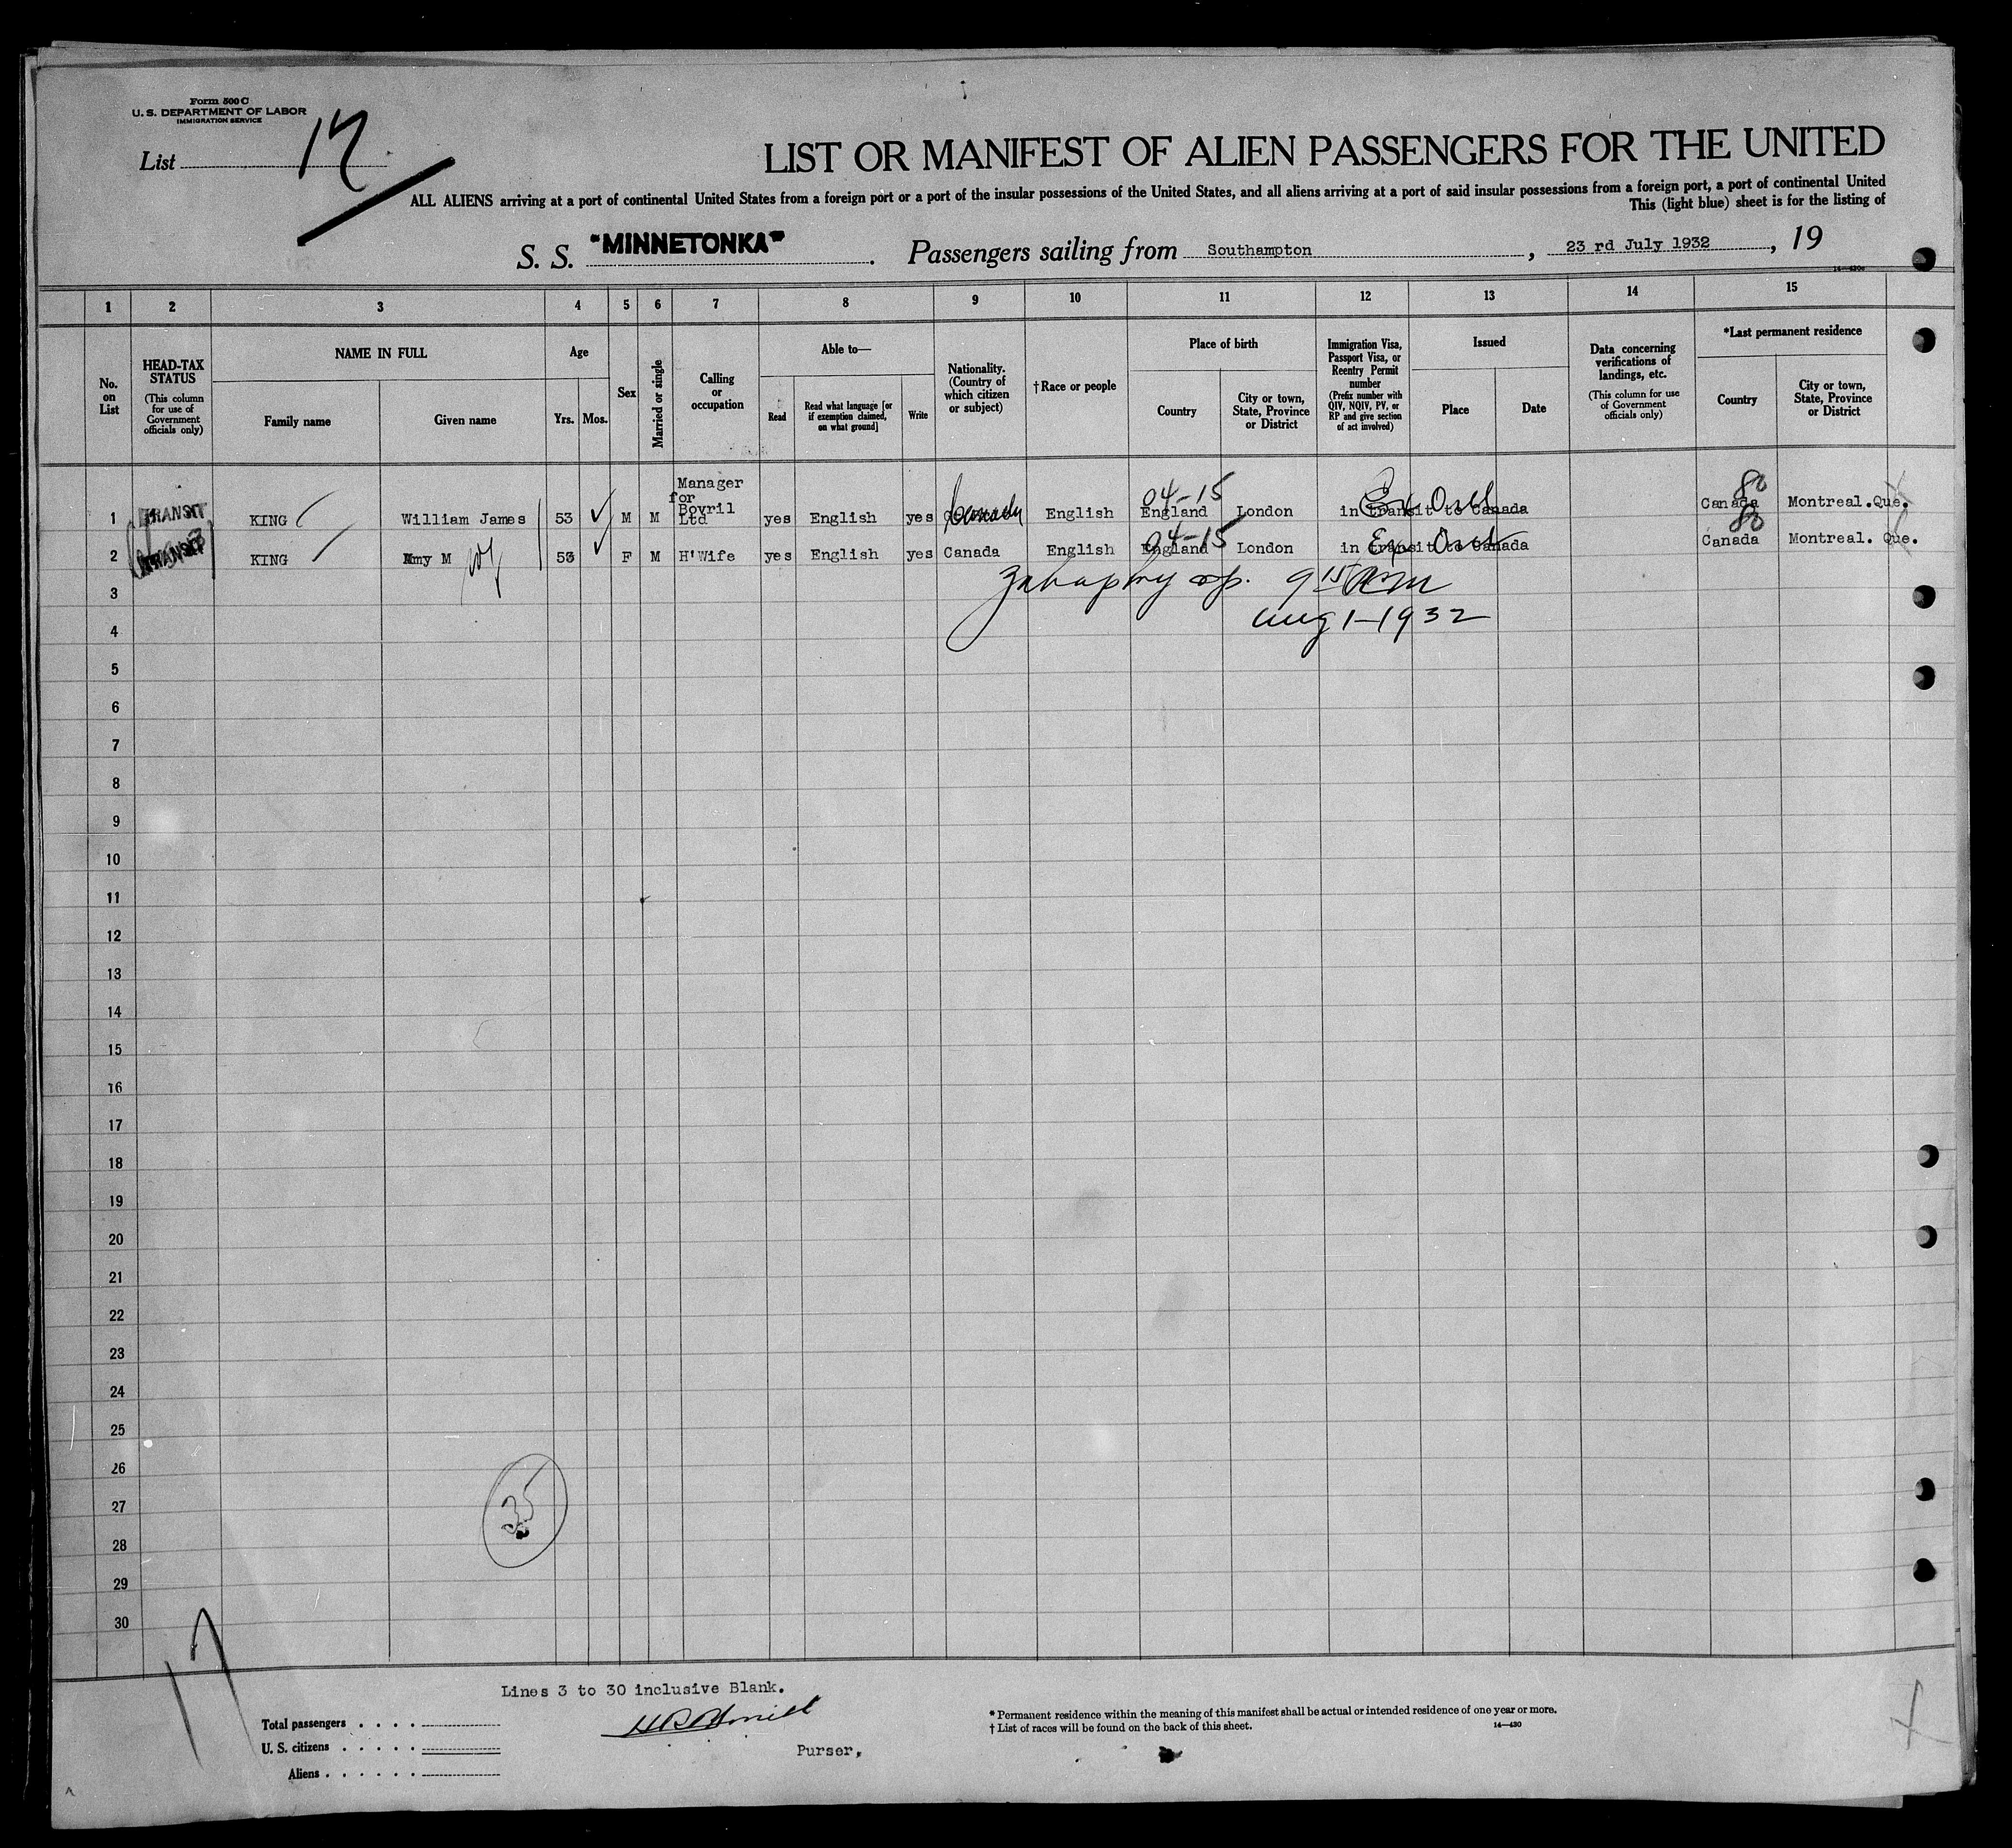 Form 500 C
U. S. DEPARTMENT OF LABOR
IMMIGRATION SERVICE
List 17
LIST OR MANIFEST OF ALIEN PASSENGERS FOR THE UNITED
ALL ALIENS arriving at a port of continental United States from a foreign port or a port of the insular possessions of the United States, and all aliens arriving at a port of said insular possessions from a foreign port, a port of continental United
This (light blue) sheet is for the listing of
S. S. "MINNETONKA". Passengers sailing from Southampton, 23 rd July 1932, 19
14—430
1 2 3 4 5 6 7 8 9 10 11 12 13 14 15
No. on List
HEAD-TAX STATUS (This column for use of Government officials only)
NAME IN FULL
Family name
Given name
Age
Yrs. Mos.
Sex
Married or single
Calling or occupation
Able to—
Read
Read what language [or if exemption claimed, on what ground]
Write
Nationality. (Country of which citizen or subject)
†Race or people
Place of birth
Country
City or town, State, Province or District
Immigration Visa, Passport Visa, or Reentry Permit number (Prefix number with QIV, NQIV, PV, or RP and give section of act involved)
Issued
Place
Date
Data concerning verifications of landings, etc. (This column for use of Government officials only)
*Last permanent residence
Country
City or town, State, Province or District
1 TRANSIT KING William James 53 M M Manager for Bovril Ltd yes English yes Canada English 04-15 England London in transit to Canada 80 Canada Montreal.Que.
2 TRANSIT KING Amy M 53 F M H'Wife yes English yes Canada English 04-15 England London in transit to Canada 80 Canada Montreal. Que.
3 9 15 AM
4 Aug 1-1932
5
6
7
8
9
10
11
12
13
14
15
16
17
18
19
20
21
22
23
24
25
26
27
28
29
30
35
17
Lines 3 to 30 inclusive Blank.
Total passengers . . . .
U. S. citizens . . . . .
Aliens . . . . . .
Purser,
* Permanent residence within the meaning of this manifest shall be actual or intended residence of one year or more.
† List of races will be found on the back of this sheet.
14—430